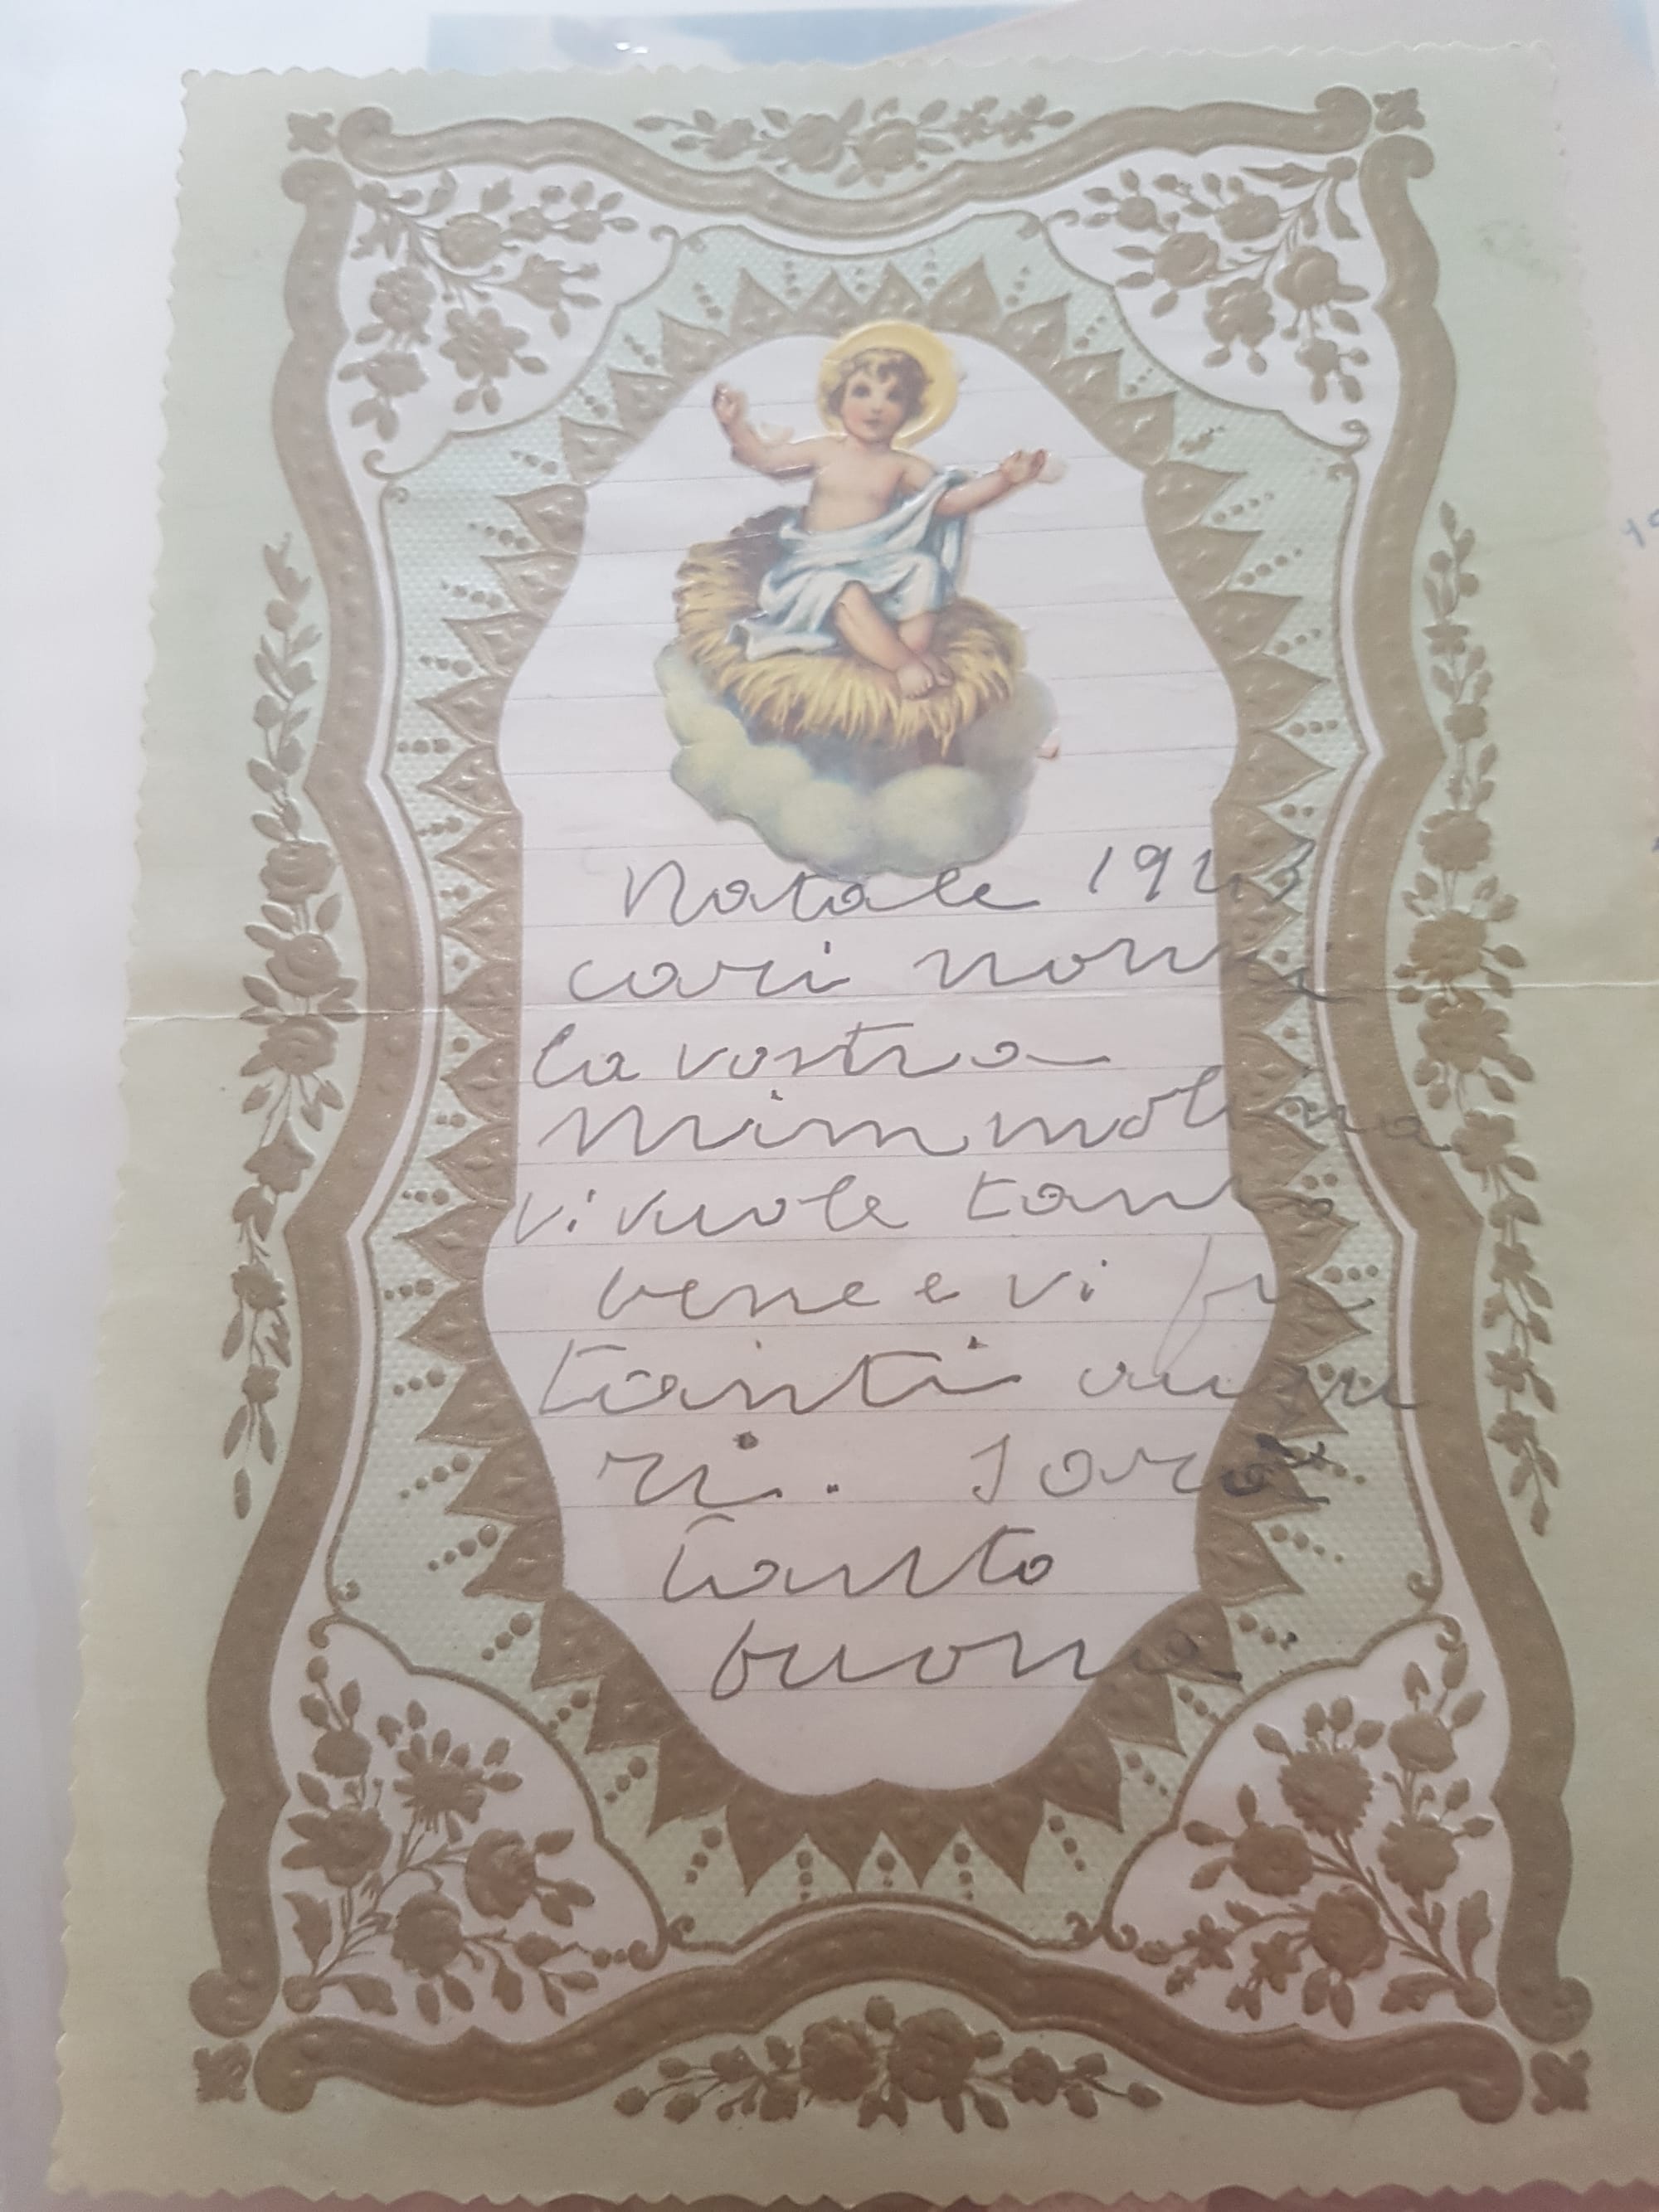 Natale 1943
cari nonni
la vostra
Mimmolina
vi vuole tanto
bene e vi fa
tanti augu
ri. Sarò
tanto
buona